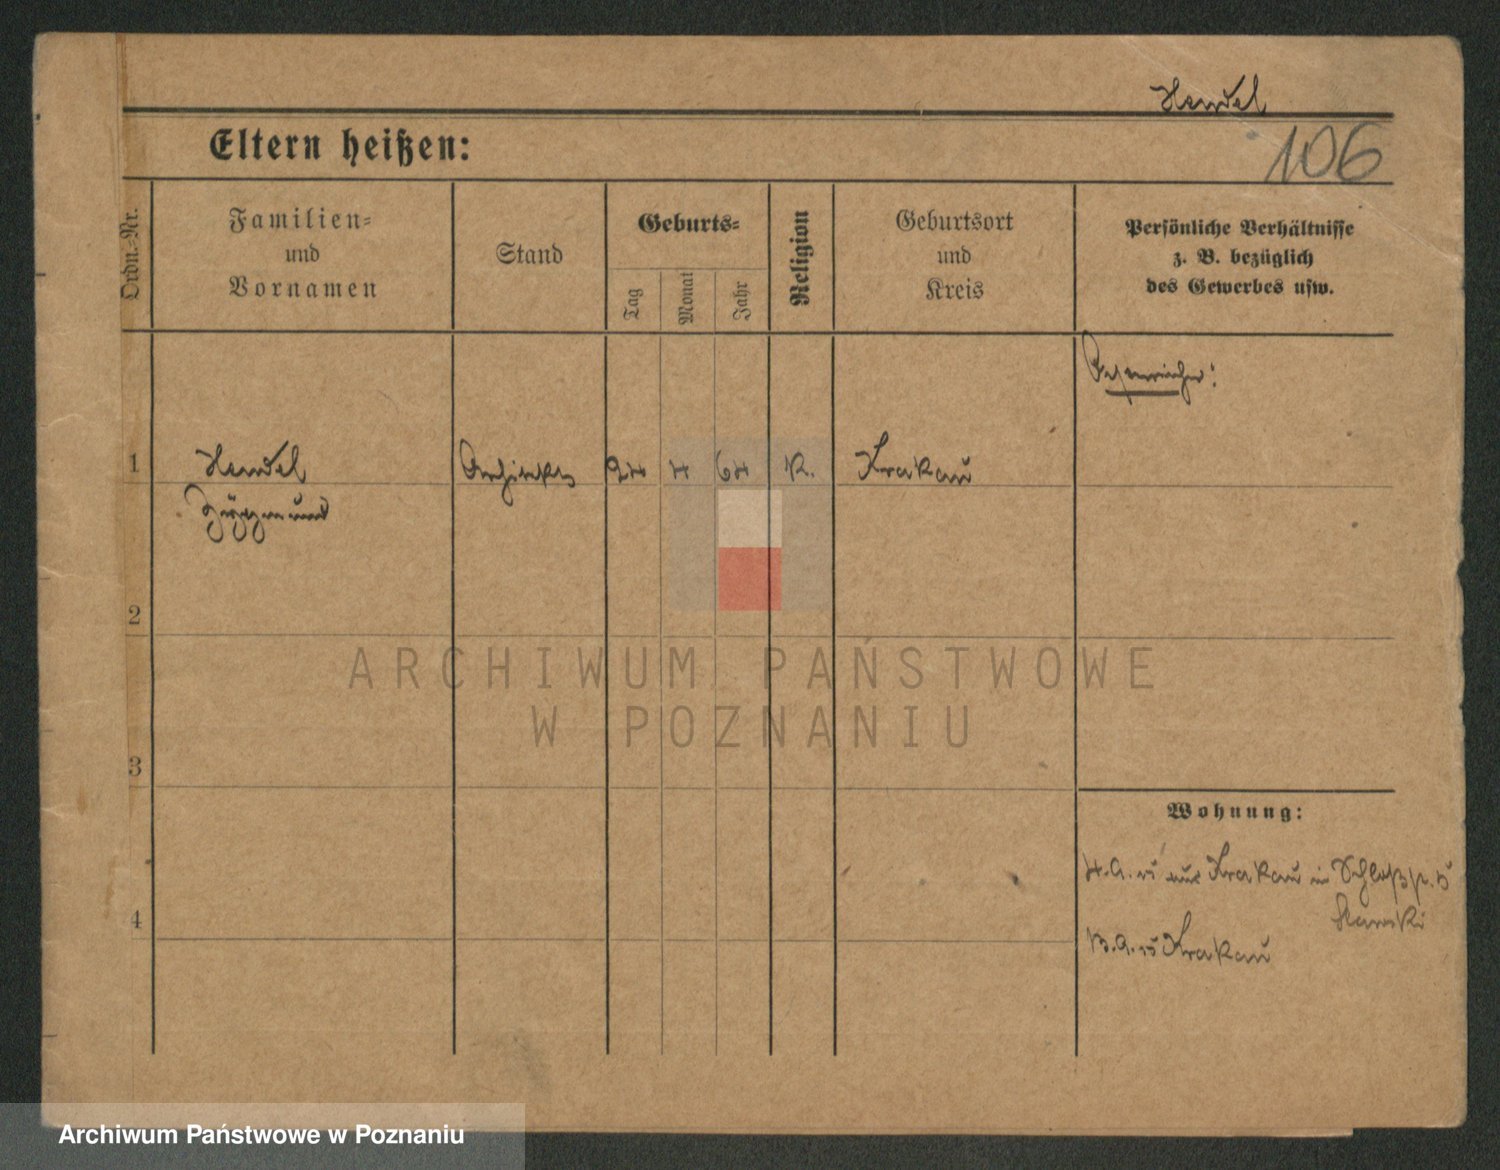 Hendel
106
Eltern heißen:
Ordn.-Nr.
Familien-
und
Vornamen
Stand
Geburts-
Tag
Monat
Jahr
Religion
Geburtsort
und
Kreis
Persönliche Verhältnisse
z. B. bezüglich
des Gewerbes usw.
Oesterreicher!
1 Hendel Architekt 24 4 64 K. Krakau
2
3
4
Wohnung:
aus Krakau in Schloß
Krakau
ARCHIWUM PAŃSTWOWE
W POZNANIU
Archiwum Państwowe w Poznaniu